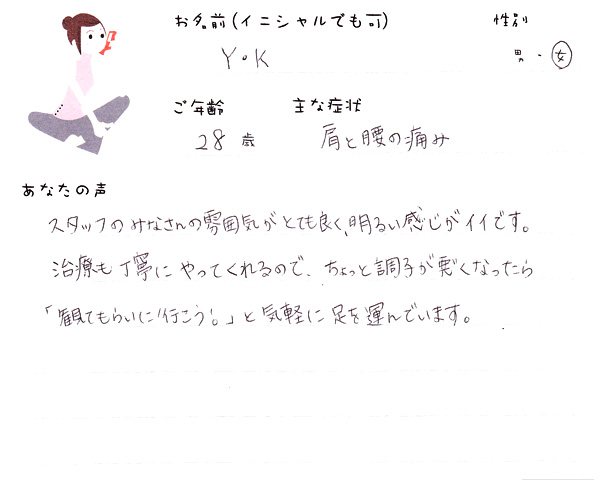 お名前(イニシャルでも可) 性別
Y・K 男・女
ご年齢 主な症状
28歳 肩と腰の痛み
あなたの声
スタッフのみなさんの雰囲気がとても良く、明るい感じがイイです。
治療も丁寧にやってくれるので、ちょっと調子が悪くなったら
「観てもらいに行こう!。」と気軽に足を運んでいます。